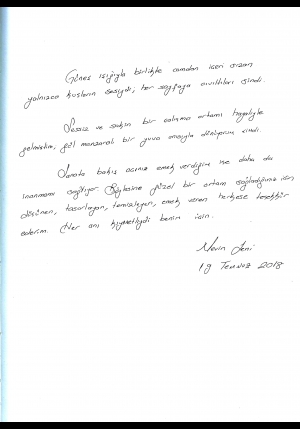 Güneş ışığıyla birlikte camdan içeri sızan
yalnızca kuşların sesiydi, her sayfaya cıvıltıları sindi.
Sessiz ve sakin bir çalışma ortamı hayaliyle
gelmiştim, göl manzaralı bir yuva anısıyla dönüyorum şimdi.
Sanata bakış açınız emek verdiğim işe daha da
inanmamı sağlıyor. Böylesine güzel bir ortam sağladığınız için
düşünen, tasarlayan, temizleyen, emek veren herkese teşekkür
ederim. Her anı kıymetliydi benim için.
Nevin
19 Temmuz 2018